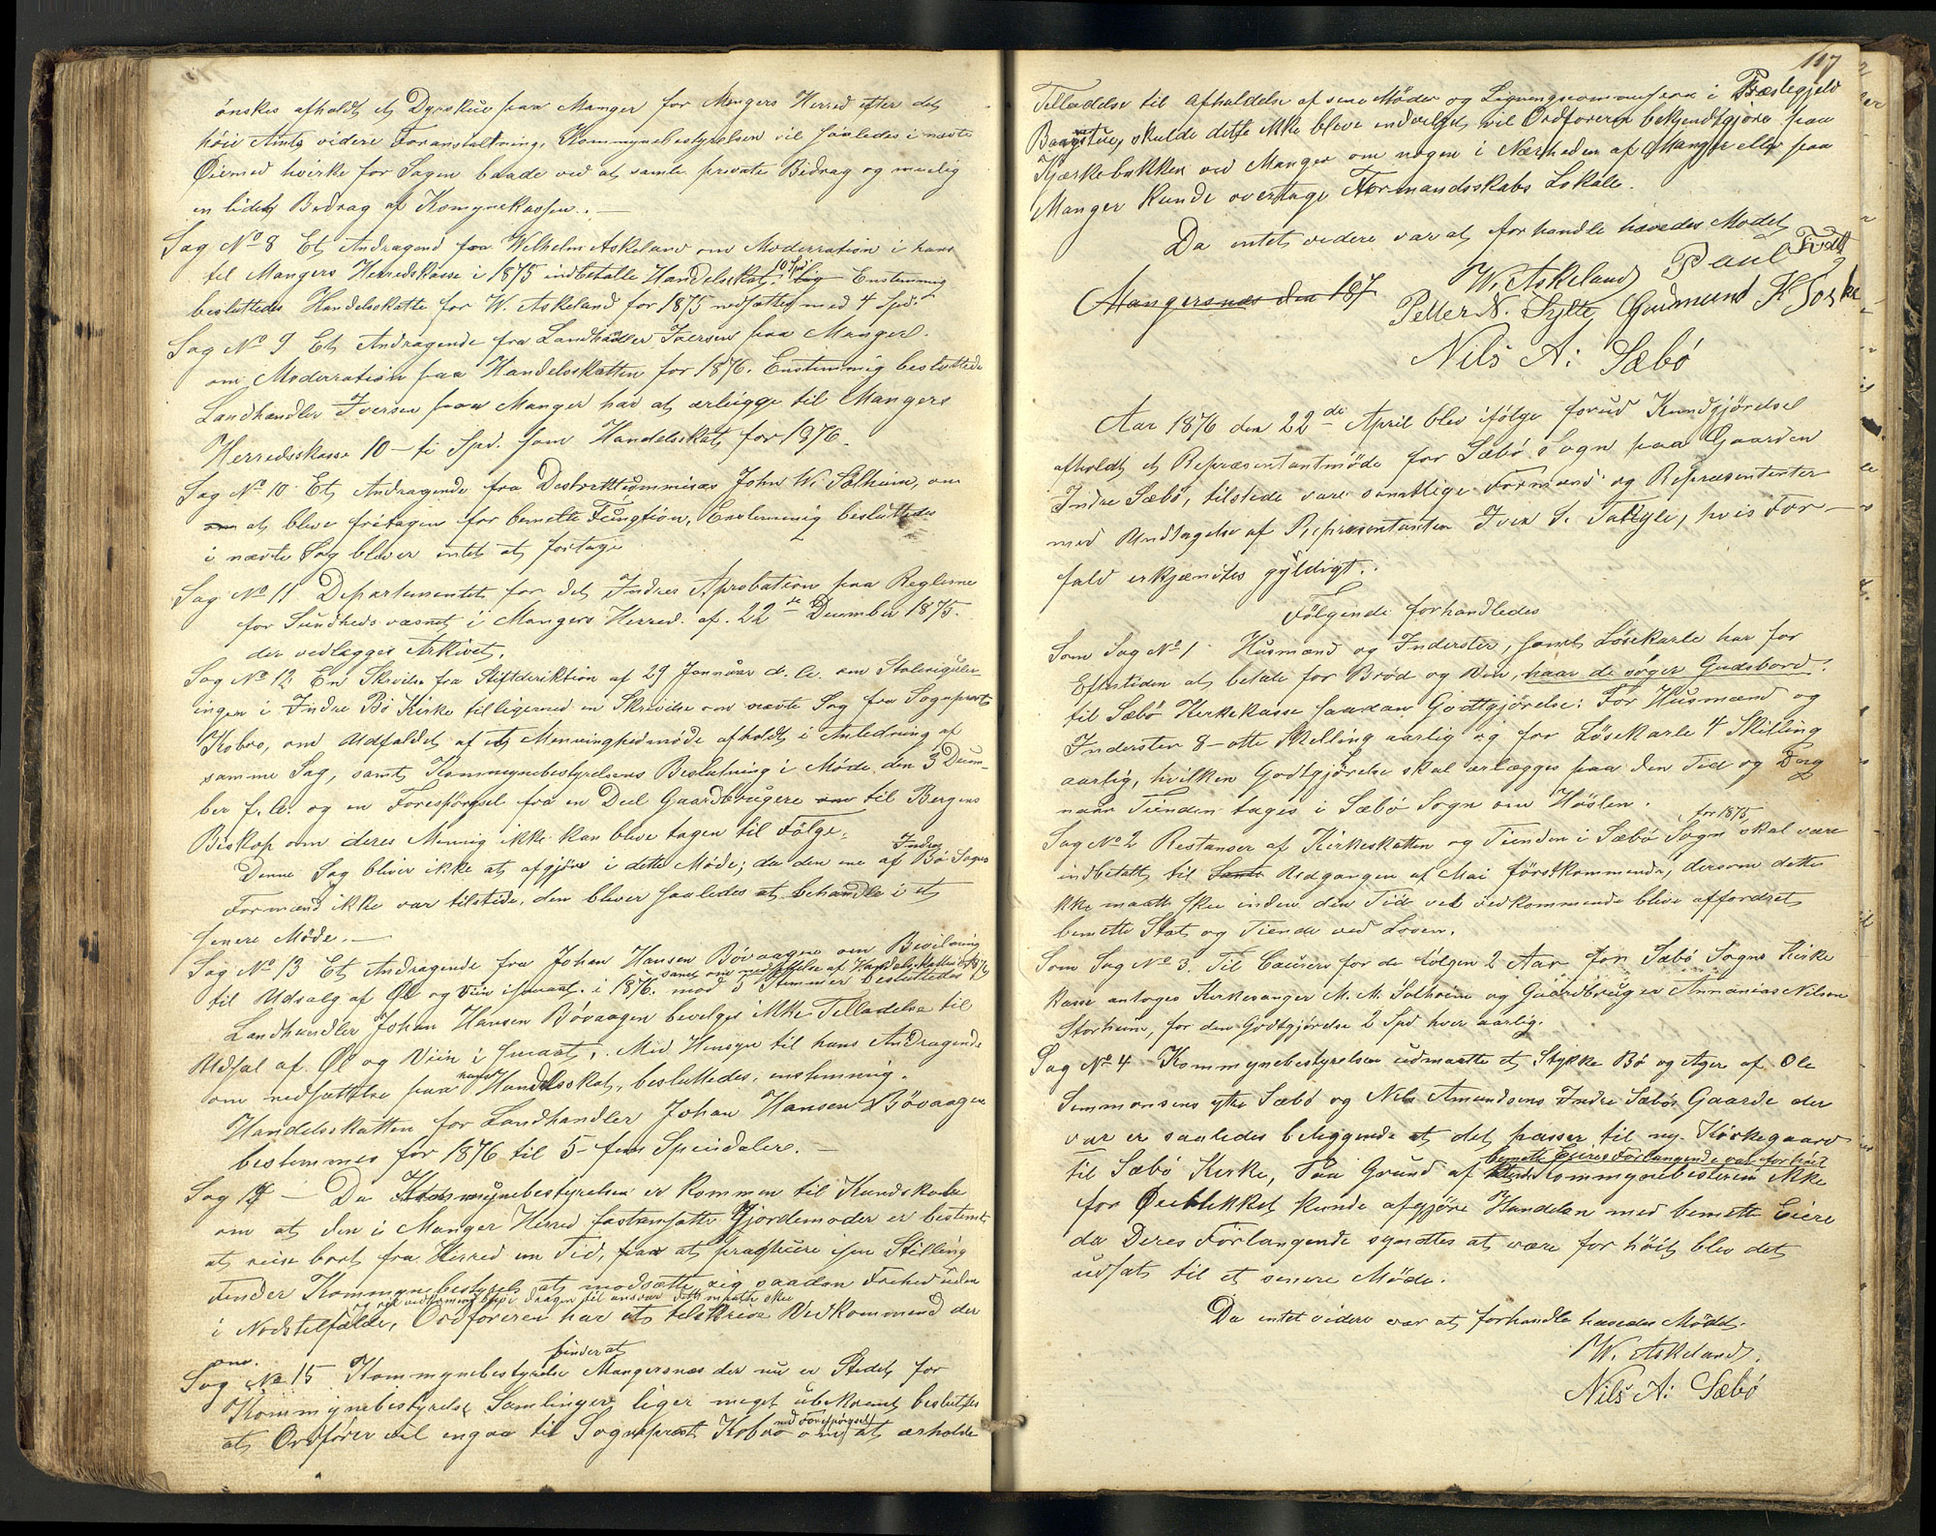 ønskes afholdt et Dyrskue paa Manger for Mangers Herred efter det
høie Amts videre Foranstaltning, Kommynebestyrelsen vil saaledes i nævte
Øiemed hvirke for Sagen baade ved at samle private Bidrag og muelig
en lidet Bedrag af Komynekassen. —
Sag No 8 Et Andragend fra Wilhelm Askeland om Moderration i hans
til Mangers Herredskasse i 1875 indbetalte Handelsskat, 10 Spd. Enstemmig
besluttedes Handelsskatte for W. Askeland for 1875 nedsættes med 4 Spd.
Sag No 9 Et Andragende fra Landhandler Iversen paa Manger.
om Moderration paa Handelsskatten for 1876. Enstemmig besluttede
Landhandler Iversen paa Manger har at erlægge til Mangers
Herredskasse 10 – ti Spd. som Handelsskat for 1876.
Sag No 10 Et Andragende fra Destriktkommisær John W. Solheim, om
om at blive fritagen for bemelte Fungtion, Enstemmig besluttedes
i nævte Sag bliver intet at foretage
Sag No 11 Departementet for det Indres Aprobation paa Reglerne
for Sundhedsvæsnet i Mangers Herred. af. 22de December 1875.
der vedlegges Arkivet.
Sag No 12. En Skrivelse fra Stiftderiktion af 29 Januar d. A. om Stolereguler-
ingen i Indre Bø Kirke tilligemed en Skrivelse om nævte Sag fra Sognprest
Kobro, om Udfaldet af et Menninghedsmøde afholdt i Anledning af
samme Sag, samt Kommynebestyrelsens Beslutning i Møde den 3 Decem-
ber f. A. og en Forespørgsel fra en Deel Gaardbrugere om til Bergens
Biskop om deres Menning ikke kan blive tagen til Følge.
Denne Sag bliver ikke at afgjøre i dette Møde; da den ene af Indre Bø Sogns
Formænd ikke var tilstede, den bliver saaledes at behandle i et
senere Møde. —
Sag No 13 Et Andragende fra Johan Hansen Bøvaagen om Bevilning
til Udsalg af Øl og Viin i smaat i 1876. samt om nedsættelse af Handelsskatten for 1876 mod 3 Stemmer besluttedes
Landhandler Johan Hansen Bøvaagen bevelges ikke Tilladelse til
Udsal af Øl og Viin i smaat. Med Hensyn til hans Andragende
om nedsættelse paa hans Handelsskat, besluttedes, enstemmig.
Handelsskatten for Landhandler Johan Hansen Bøvaagen
bestemmes for 1876 til 5 – fem Speindaler. —
Sag 14 – Da Kommynebestyrelsen er kommen til Kundskabe
om at den i Manger Herred fastansatte Gjordemoder er bestemt
at reise bort fra Herred en Tid, paa at practisere sin Stilling
Finder Kommynebestyrels at modsætte sig saadan Frehed uden
i Nodstelfælde, og ved vedkommende drages til ansvar dette maatte skee Ordføreren har at telskrive Vedkommend der
om.
Sag No 15 Kommynebestyrelse finder at Mangersnæs der nu er Stedet for
Kommynebestyrelse Samlinger, liger meget ubekvemt besluttes
at Ordfører vil ingaa til Sogneprest Kobro med Forespørgsel om at erholde
117
Telladelse til Afholdelse af sine Møder og Ligningscommisjon i Præstegjeld
Borgstue, skulde dette ikke bleve indvelget vil Ordføreren bekjendtgjøre paa
Kjærkebakken ved Manger om nogen i Nærheden af Manger eller paa
Manger kunde overtage Formandsskabs Lokale.
Da intet videre var at forhandle hævedes Mødet
W. Askeland Paul Fodt
Mangersnæs den 187 Petter N. Sylte, Gudmund K Toska
Nils A: Sæbö
Aar 1876 den 22de April blev ifølge forud Kundgjørelsel
afholdt et Repræsentantmøde for Sæbø Sogn paa Gaarden
Indre Sæbø, tilstede vare samtlige Formænd og Repræsentenster
med Undtagelse af Repræsentanten Iver S. , hvis For-
fald erkjændtes gyldigt.
Følgende forhandledes
Som Sag No 1. Husmænd og Inderster, samt Løsekarle har for
Eftertiden at betale for Brød og Viin, naar de søger Gudsbord.
til Sæbø Kirkekasse saadan Godtgjørelse: For Husmænd og
Inderster 8 – otte Skelling aarlig og for Løsekarle 4 Skilling
aarlig, hvilken Godtgjørelse skal erlægges paa den Tid og Dag
naar Tienden tages i Sæbø Sogn om Høsten.
Sag No 2 Restanser af Kirkeskatten og Tienden i Sæbø Sogn for 1875 skal være
indbetalt til Udgangen af Mai førstkommende, dersom dette
ikke maatte skee inden den Tid vel vedkommende blive affordret
bemelte Skat og Tiende ved Loven.
Som Sag No 3. Til Casserer for de følgen 2 Aar for Sæbø Sogns Kirke
kasse antoges Kirkesanger M. M. Solheim og Gaardbruger Annanias Nilsen
Storheim, for den Godtgjørelse 2 Spd hver aarlig.
Sag No 4 – Kommynebestyrelsen udmaatte et Stykke Bø og Ager af Ole
Simmonsens ytre Sæbø og Nils Amundsens Indre Sæbøs Gaarde der
var er saaledes beleggende at det passer til ny Kirkegaard
til Sæbø Kirke, Paa Grund af bemelte Eieres Forlangende var for høit Kommynebesteren ikke
for Øieblikket kunde afgjøre Handelen med bemelte Eiere
da Deres Forlangende syndtes at være for høit blev det
udsat til et senere Møde.
Da intet videre var at forhandle hævedes Mødet.
W. Askeland.
Nils A: Sæbö